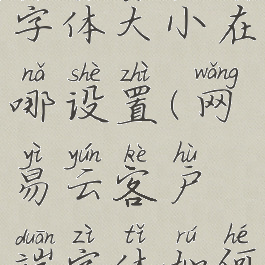 字体大小在
nǎ shè zhì wǎng
哪设置(网
yì yún kè hù
易云客户
duān zì tǐ rú hé
端字体如何